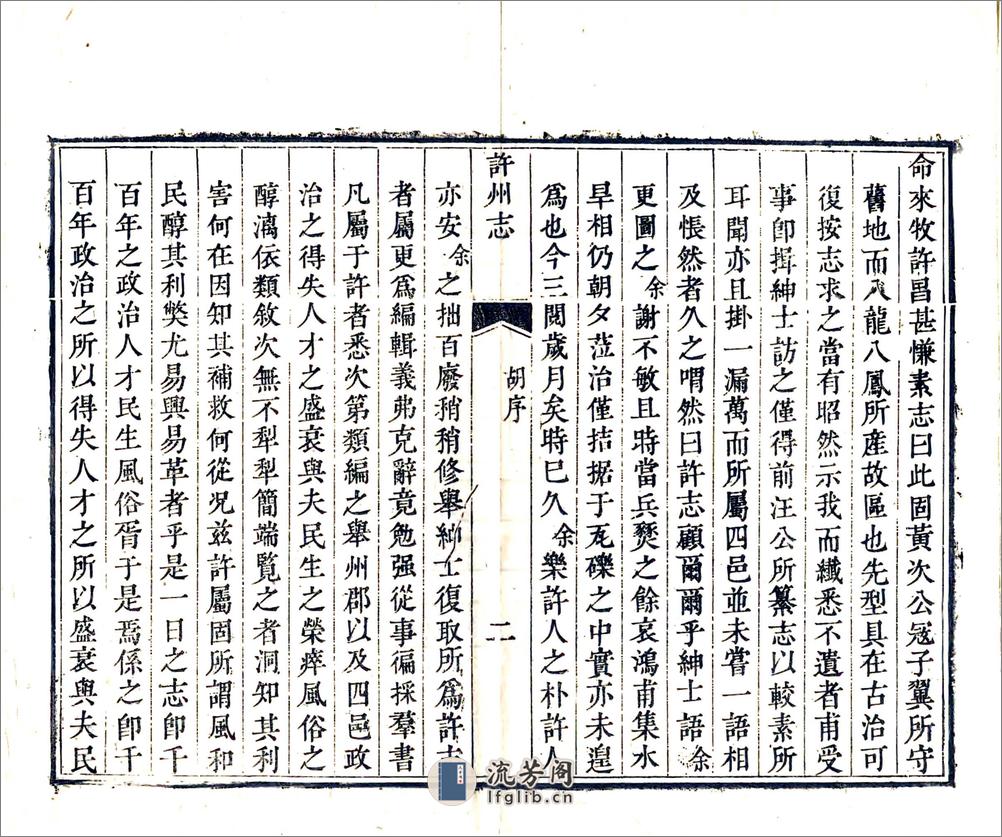 命來牧許昌甚慊素志曰此固黃次公寇子翼所守
舊地而八龍八鳳所産故區也先型具在古治可
復按志求之當有昭然示我而纖悉不遺者甫受
事卽揖紳士訪之僅得前汪公所纂志以較素所
耳聞亦且掛一漏萬而所屬四邑並未嘗一語相
及悵然者久之喟然曰許志顧爾爾乎紳士語余
更圖之余謝不敏且時當兵燹之餘哀鴻甫集水
旱相仍朝夕蒞治僅拮据于瓦礫之中實亦未遑
爲也今三閱歲月矣時巳久余樂許人之朴許人
許州志
胡序
二
亦安余之拙百廢稍稍修舉紳士復取所爲許志
者屬更爲編輯義弗克辭竟勉强從事徧採羣書
凡屬于許者悉次第類編之舉州郡以及四邑政
治之得失人才之盛衰與夫民生之榮瘁風俗之
醇漓依類敘次無不犁犁簡端覽之者洞知其利
害何在因知其補救何從况兹許屬固所謂風和
民醇其利獘尤易興易革者乎是一日之志卽千
百年之政治人才民生風俗胥于是焉係之卽千
百年政治之所以得失人才之所以盛衰與夫民
流芳阁
lfglib.cn